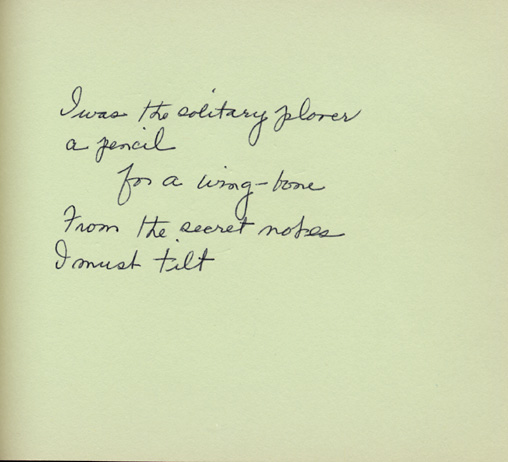 I was the solitary plover
a pencil
for a wing-bone
From the secret notes
I must tilt